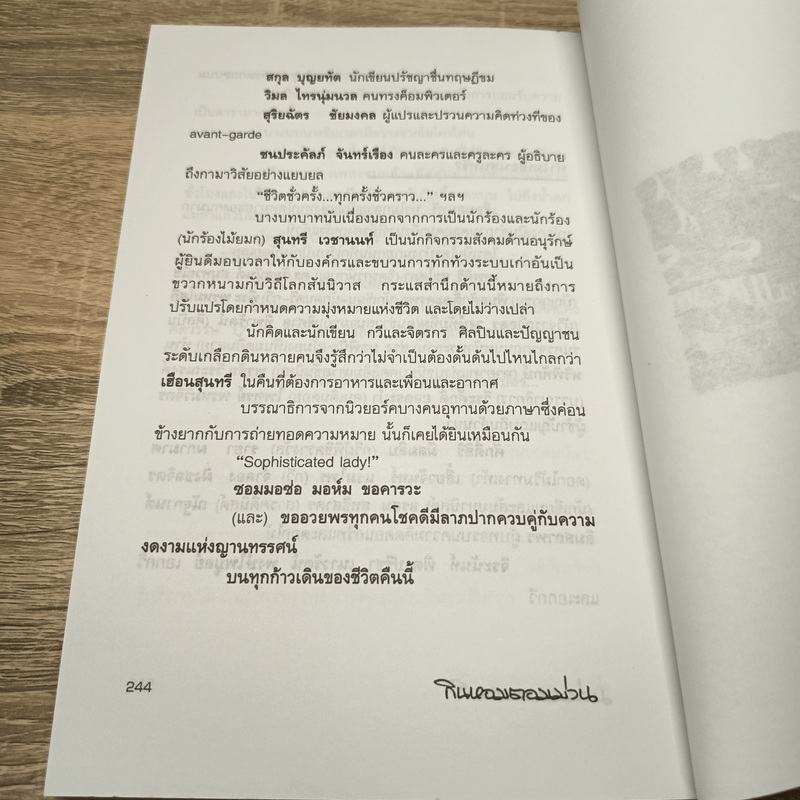 สกุล บุญยทัต นักเขียนปรัชญาชื่นทฤษฎีขม
วิมล ไทรนิ่มนวล คนทรงค็อมพิวเตอร์
สุริยฉัตร ชัยมงคล ผู้แปรและปรวนความคิดท่วงทีของ
avant-garde
ชนประคัลภ์ จันทร์เรือง คนละครและครูละคร ผู้อธิบาย
ถึงกามาวิสัยอย่างแยบยล
“ชีวิตชั่วครั้ง...ทุกครั้งชั่วคราว...” ฯลฯ
บางบทบาทนับเนื่องนอกจากการเป็นนักร้องและนักร้อง
(นักร้องไม้ยมก) สุนทรี เวชานนท์ เป็นนักกิจกรรมสังคมด้านอนุรักษ์
ผู้ยินดีมอบเวลาให้กับองค์กรและขบวนการทักท้วงระบบเก่าอันเป็น
ขวากหนามกับวิถีโลกสันนิวาส กระแสสำนึกด้านนี้หมายถึงการ
ปรับแปรโดยกำหนดความมุ่งหมายแห่งชีวิต และโดยไม่ว่างเปล่า
นักคิดและนักเขียน กวีและจิตรกร ศิลปินและปัญญาชน
ระดับเกลือกดินหลายคนจึงรู้สึกว่าไม่จำเป็นต้องดั้นด้นไปไหนไกลกว่า
เฮือนสุนทรี ในคืนที่ต้องการอาหารและเพื่อนและอากาศ
บรรณาธิการจากนิวยอร์คบางคนอุทานด้วยภาษาซึ่งค่อน
ข้างยากกับการถ่ายทอดความหมาย นั้นก็เคยได้ยินเหมือนกัน
“Sophisticated lady!”
ซอมมอซ่อ มอห์ม ขอคารวะ
(และ) ขออวยพรทุกคนโชคดีมีลาภปากควบคู่กับความ
งดงามแห่งญานทรรศน์
บนทุกก้าวเดินของชีวิตคืนนี้
244